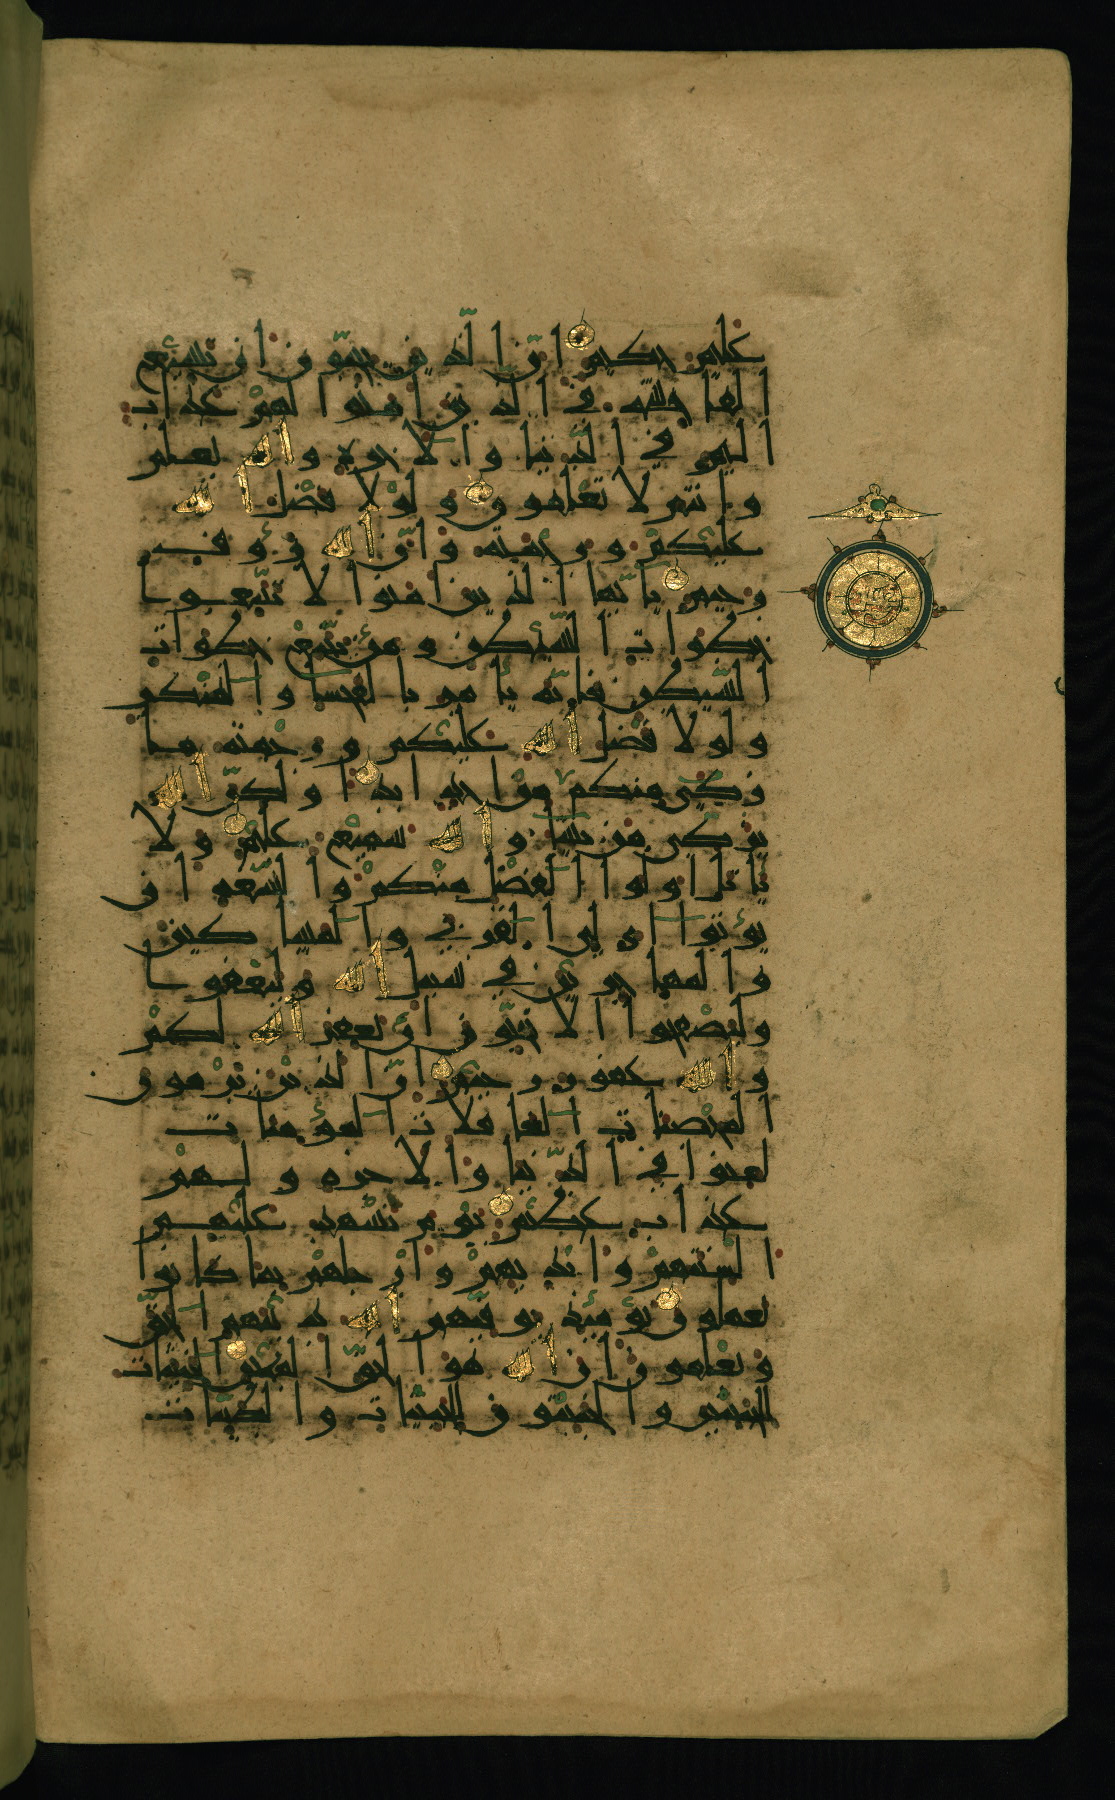 عليم حكيم ان الذين يحبون ان تشيع
الفاحشة في الذين امنوا لهم عذاب
اليم في الدنيا والاخرة والله يعلم
وانتم لا تعلمون ولولا فضل الله
عليكم ورحمته وان الله رؤوف
رحيم يايها الذين امنوا لا تتبعوا
خطوات الشيطن ومن يتبع خطوات
الشيطن فانه يامر بالفحشا والمنكر
ولولا فضل الله عليكم ورحمته ما
زكى منكم من احد ابدا ولكن الله
يزكي من يشا والله سميع عليم ولا
ياتل اولوا الفضل منكم والسعة ان
يؤتوا اولي القربى والمساكين
والمهاجرين في سبيل الله وليعفوا
وليصفحوا الا تحبون ان يغفر الله لكم
والله غفور رحيم ان الذين يرمون
المحصنات الغافلات المؤمنات
لعنوا في الدنيا والاخرة ولهم
عذاب عظيم يوم تشهد عليهم
السنتهم وايديهم وارجلهم بما كانوا
يعملون يومئذ يوفيهم الله دينهم الحق
ويعلمون ان الله هو الحق المبين الخبيثات
للخبيثين والخبيثون للخبيثات والطيبات